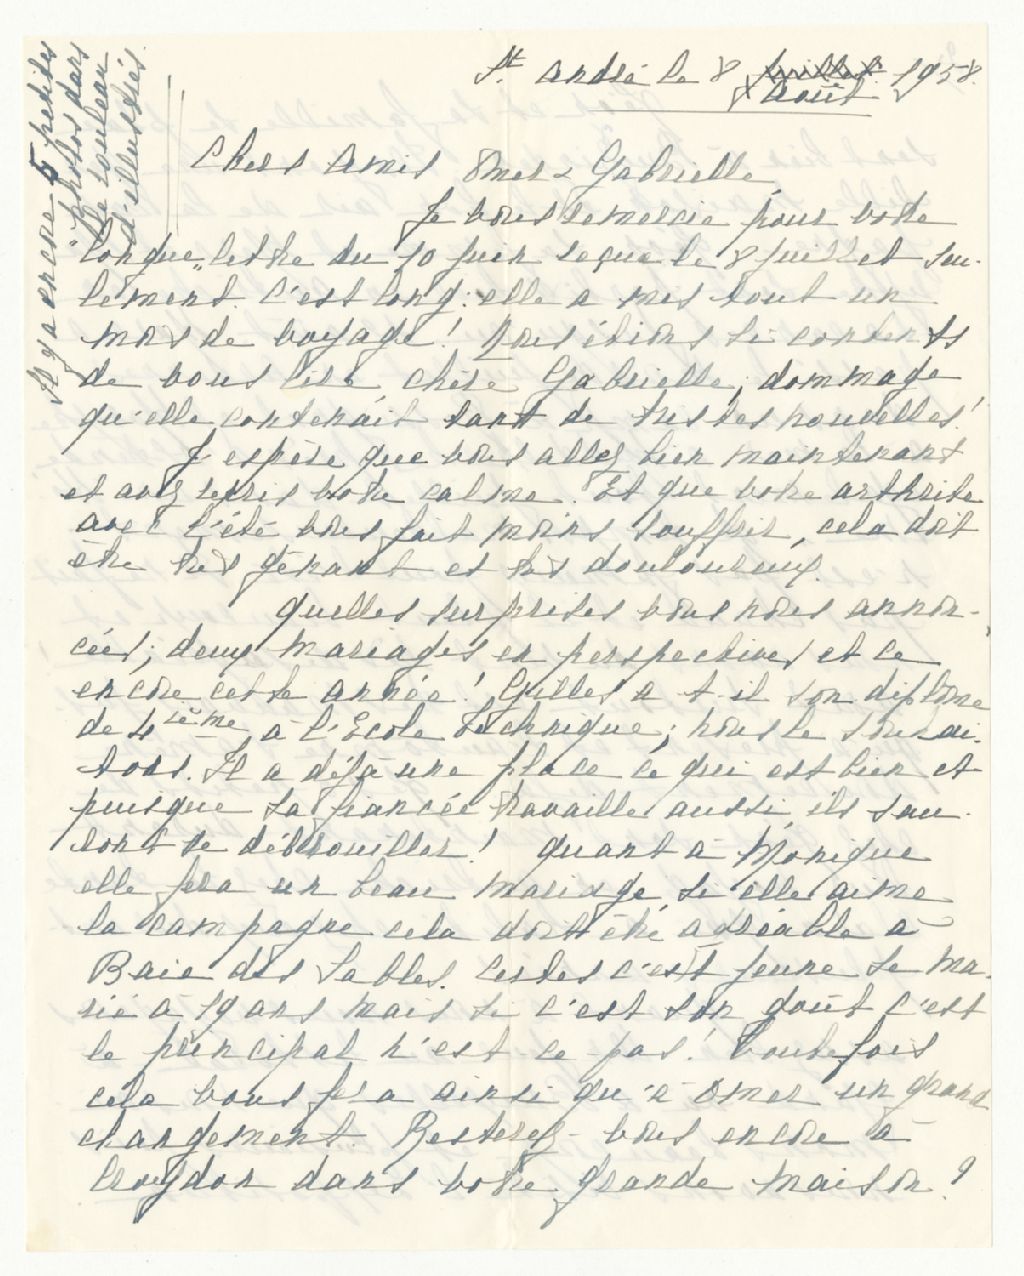 St André le 8 juillet 1958.
août
Chers Amis Omer & Gabrielle,
Je vous remercie pour votre
longue lettre du 10 juin reçue le 8 juillet seu-
lement. C'est long: elle a mis tout un
mois de voyage! Nous étions si contents
de vous lire chère Gabrielle, dommage
qu'elle contenait tant de tristes nouvelles!
J'espère que vous allez bien maintenant
et avez repris votre calme. Et que votre arthrite
avec l'été vous fait moins souffrir, cela doit
être très gênant et très douloureux.
Quelles surprises vous nous annon-
cées; deux mariages en perspectives et ce
encore cette année! Gilles a-t-il son diplôme
de 4ième à l'Ecole Technique; nous le souhai-
tons. Il a déjà une place ce qui est bien et
puisque sa fiancée travaille aussi, ils sau-
ront se débrouiller! Quant à Monique
elle fera un beau mariage, si elle aime
la campagne cela doit être agréable à
Baie des Sables. Certes c'est jeune se ma-
rié à 19 ans mais si c'est son goût c'est
le principal n'est ce pas! Toutefois
cela vous fera ainsi qu'à Omer un grand
changement. Resterez-vous encore à
Croydon dans votre grande maison?
Il y a encore 5 petites
photos dans
le rouleau
d'illustrés